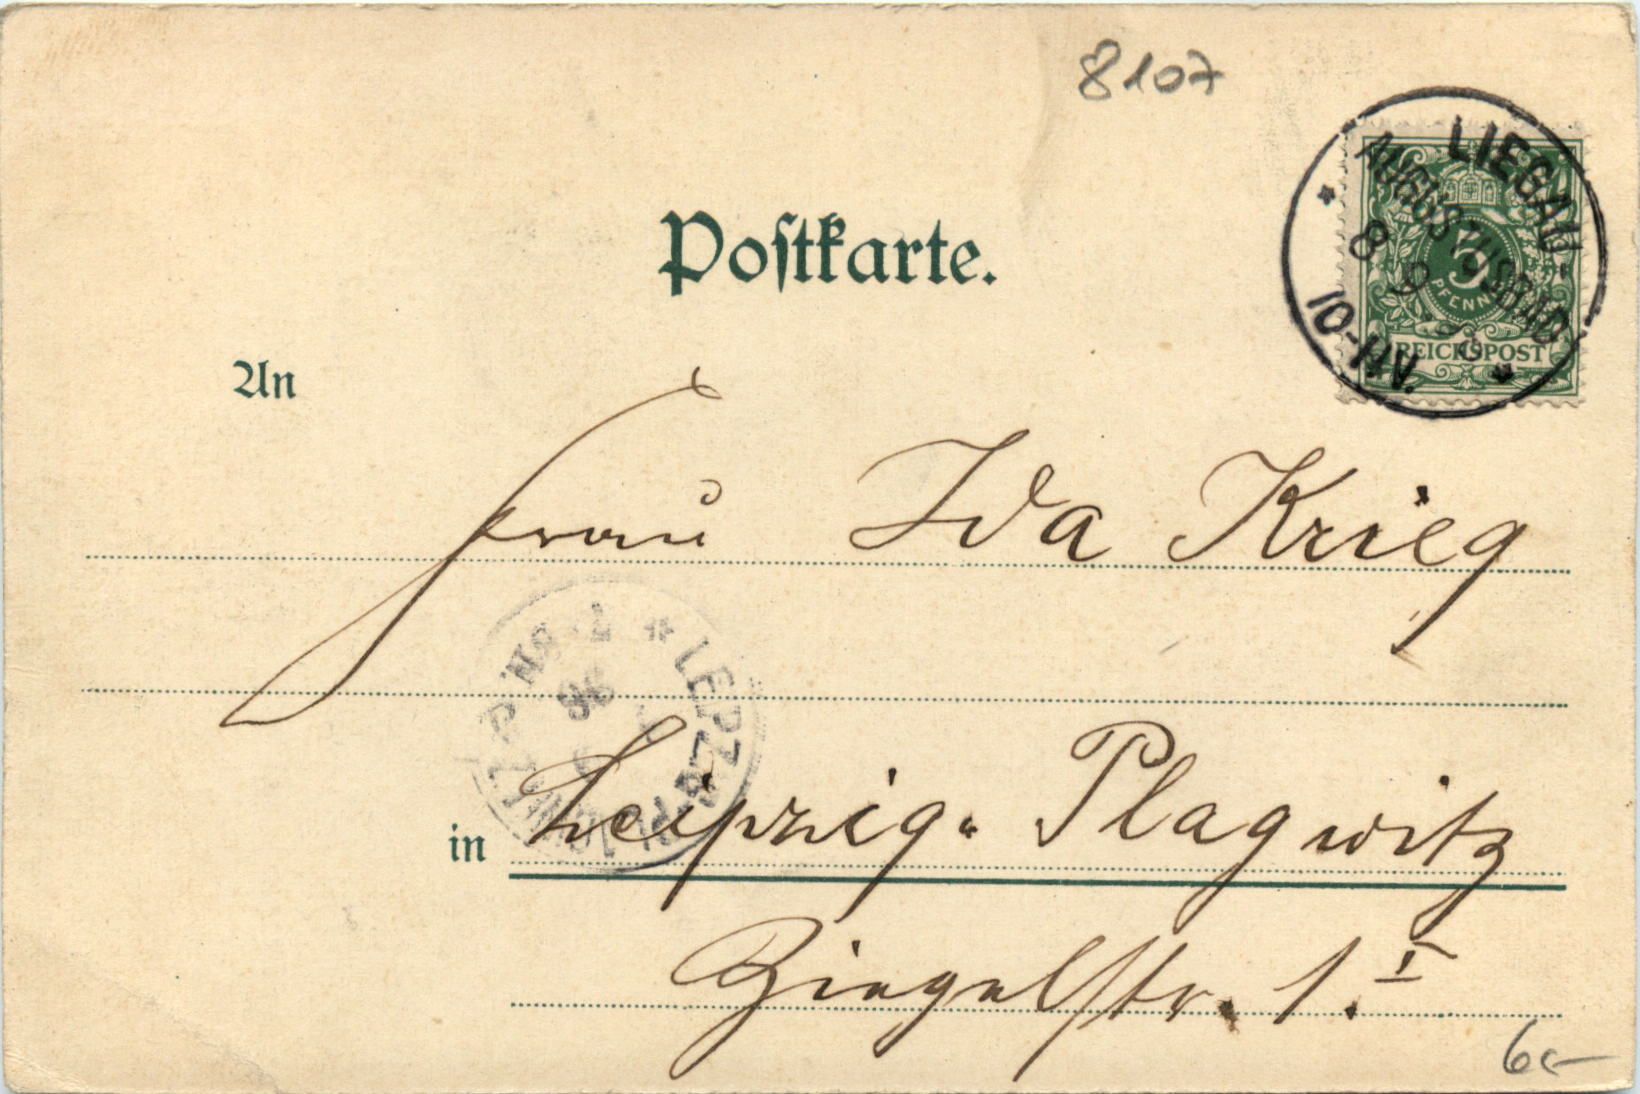 8107
LIEGAU-
AUGUSTUSBAD
8 9 98
10-11N.
5
PFENNIG
REICHSPOST
Postkarte.
An
Frau Ida Krieg
LEIPZIG-PLAGWITZ
98
in Leipzig. Plagwitz
Ziegelstr. 1. I
6.-